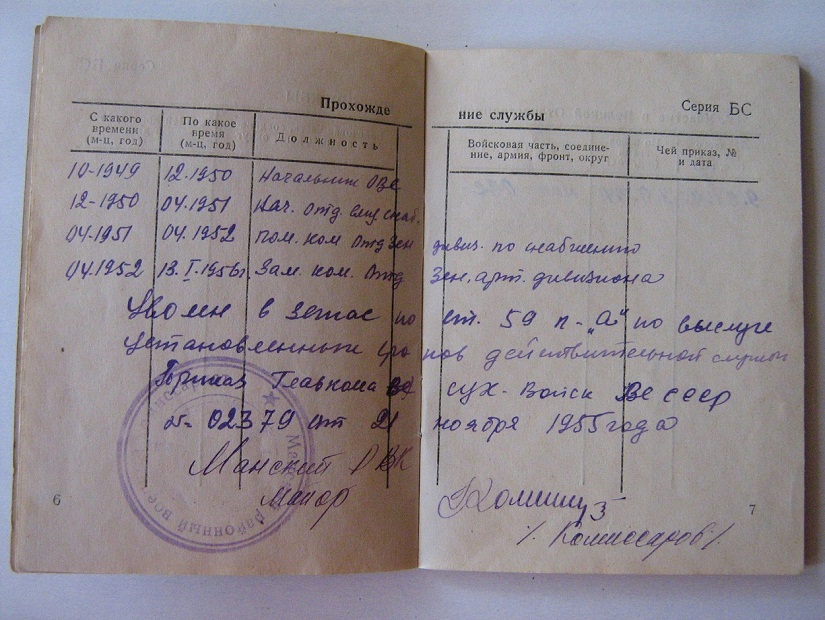 Серия БС
Прохождение службы
С какого времени (м-ц, год)
По какое время (м-ц, год)
Должность
Войсковая часть, соедине-
ние, армия, фронт, округ
Чей приказ, №
и дата
10-1949 12.1950 Начальник
12-1950 04.1951 Нач. отд.
04.1951 04.1952 пом. ком отд зен дивиз. по снабжению
04.1952 13.I.1956г. Зам. ком. отд зен. арт. дивизиона
Уволен в запас по ст. 59 п-„а“ по выслуге
установленных сроков действительной службы
Приказ Главкома сух. войск ВС СССР
№ 02379 от 21 ноября 1955 года
Манский РВК
Майор
/Комиссаров/
районный вое
6
7